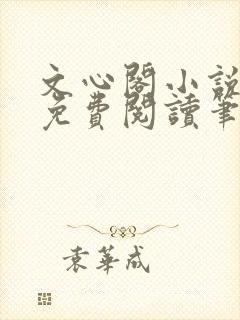 文心閣小說
免費閱讀筆
袁華成